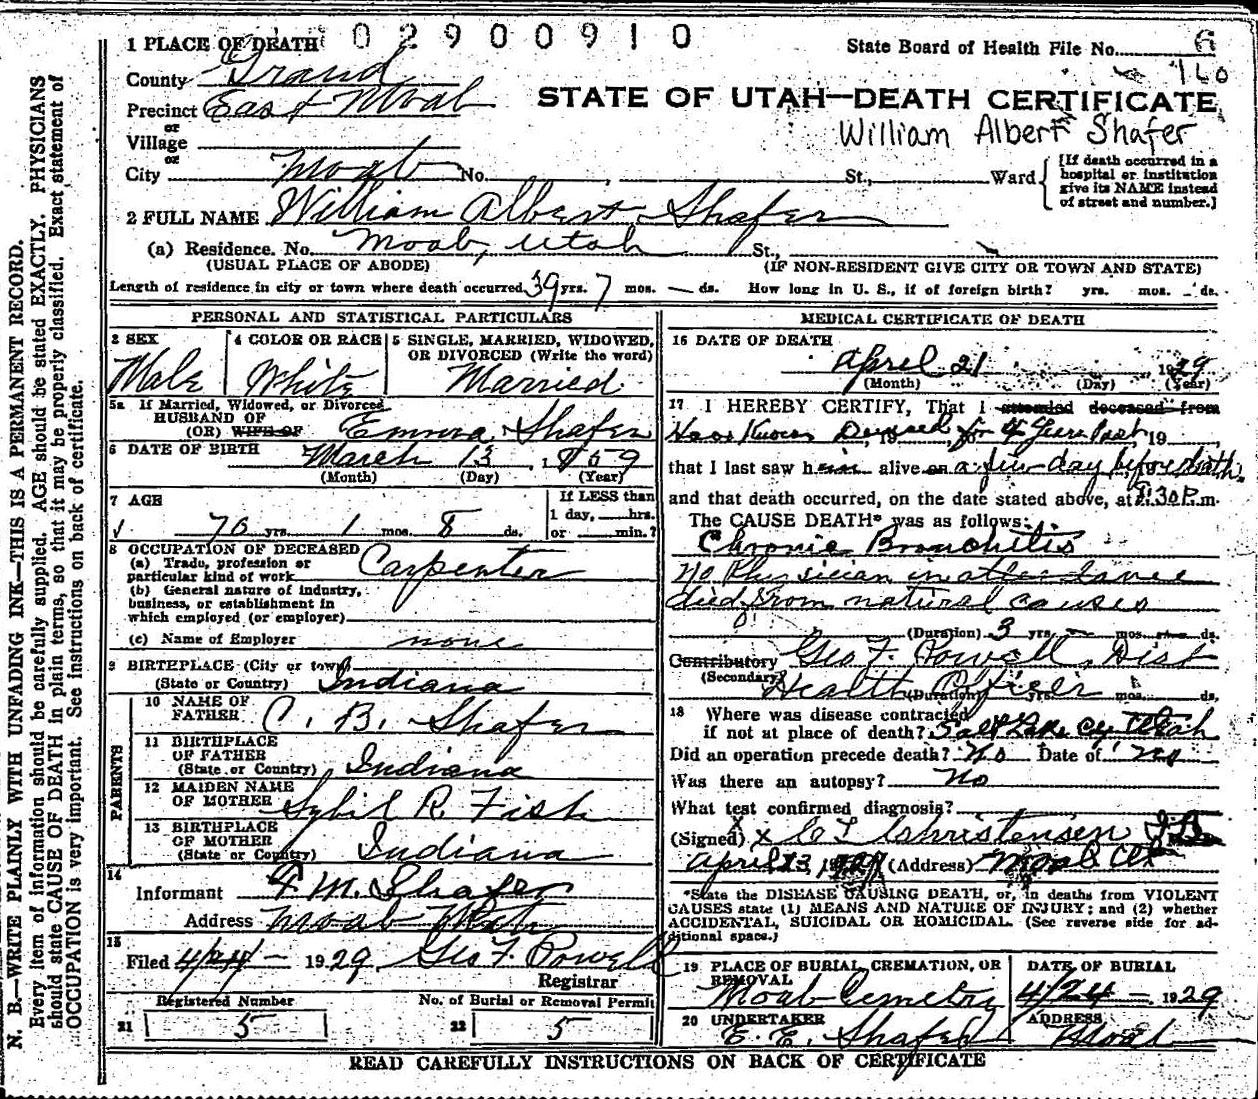 02900910
1 PLACE OF DEATH
State Board of Health File No. 6
160
County Grand
Precinct East Moab
STATE OF UTAH—DEATH CERTIFICATE
William Albert Shafer
or
Village
or
City Moab No. , St., Ward
[If death occurred in a
hospital or institution
give its NAME instead
of street and number.]
2 FULL NAME William Albert Shafer
(a) Residence. No. Moab, Utah St.,
(USUAL PLACE OF ABODE) (IF NON-RESIDENT GIVE CITY OR TOWN AND STATE)
Length of residence in city or town where death occurred 39 yrs. 7 mos. — ds. How long in U. S., if of foreign birth? yrs. mos. ds.
PERSONAL AND STATISTICAL PARTICULARS
3 SEX
Male
4 COLOR OR RACE
White
5 SINGLE, MARRIED, WIDOWED,
OR DIVORCED (Write the word)
Married
5a If Married, Widowed, or Divorced
HUSBAND OF
(OR) WIFE OF Emma Shafer
6 DATE OF BIRTH March 13, 1859
(Month) (Day) (Year)
7 AGE
70 yrs. 1 mos. 8 ds.
If LESS than
1 day, hrs.
or min.?
8 OCCUPATION OF DECEASED
(a) Trade, profession or
particular kind of work Carpenter
(b) General nature of industry,
business, or establishment in
which employed (or employer)
(c) Name of Employer none
9 BIRTHPLACE (City or town)
(State or Country) Indiana
PARENTS
10 NAME OF
FATHER C. B. Shafer
11 BIRTHPLACE
OF FATHER
(State or Country) Indiana
12 MAIDEN NAME
OF MOTHER Sybil R. Fish
13 BIRTHPLACE
OF MOTHER
(State or Country) Indiana
14
Informant F. M. Shafer
Address Moab Utah
15
Filed 4/24 - 1929 Geo F. Powell
Registrar
Registered Number
21 5
No. of Burial or Removal Permit
22 5
MEDICAL CERTIFICATE OF DEATH
16 DATE OF DEATH
April 21 1929
(Month) (Day) (Year)
17 I HEREBY CERTIFY, That I attended deceased from
Have Known Deceased for 4 Years Past, 19
that I last saw him alive on a few day before death.
and that death occurred, on the date stated above, at 8:30 P.m.
The CAUSE DEATH* was as follows:
Chronic Bronchitis
No Physician in attendance
died from natural causes
(Duration) 3 yrs. — mos. ds.
Contributory Geo F. Powell, Dist
(Secondary) Health Officer (Duration) yrs. mos. ds.
18 Where was disease contracted
if not at place of death? Salt Lake Cy Utah
Did an operation precede death? No Date of no
Was there an autopsy? No
What test confirmed diagnosis?
(Signed) x C L Christensen
April 23, 1929 (Address) Moab
*State the DISEASE CAUSING DEATH, or, in deaths from VIOLENT
CAUSES state (1) MEANS AND NATURE OF INJURY; and (2) whether
ACCIDENTAL, SUICIDAL OR HOMICIDAL. (See reverse side for ad-
ditional space.)
19 PLACE OF BURIAL, CREMATION, OR
REMOVAL
Moab Cemetry
DATE OF BURIAL
4/24 - 1929
20 UNDERTAKER
E. E. Shafer
ADDRESS
Moab
READ CAREFULLY INSTRUCTIONS ON BACK OF CERTIFICATE
N. B.—WRITE PLAINLY WITH UNFADING INK—THIS IS A PERMANENT RECORD.
Every item of information should be carefully supplied. AGE should be stated EXACTLY. PHYSICIANS
should state CAUSE OF DEATH in plain terms, so that it may be properly classified. Exact statement of
OCCUPATION is very important. See instructions on back of certificate.